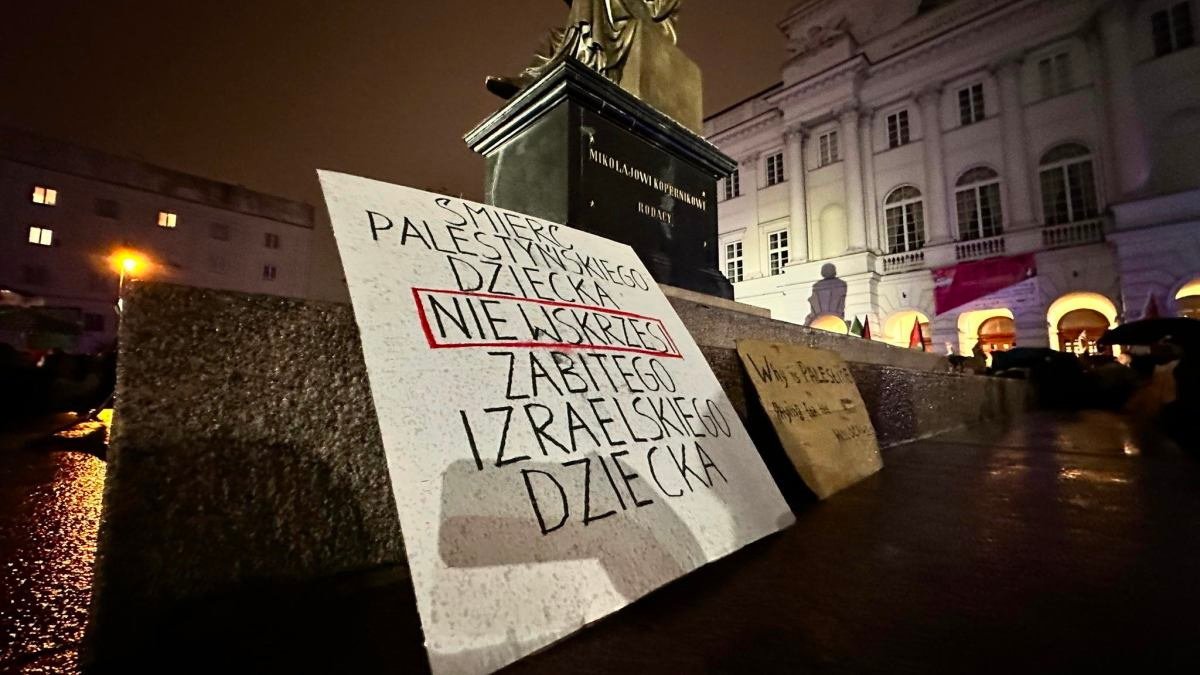 MIKOŁAJOWI KOPERNIKOWI
RODACY
ŚMIERĆ
PALESTYŃSKIEGO
DZIECKA
NIE WSKRZESI
ZABITEGO
IZRAELSKIEGO
DZIECKA
Why is PALESTINE
Paying for